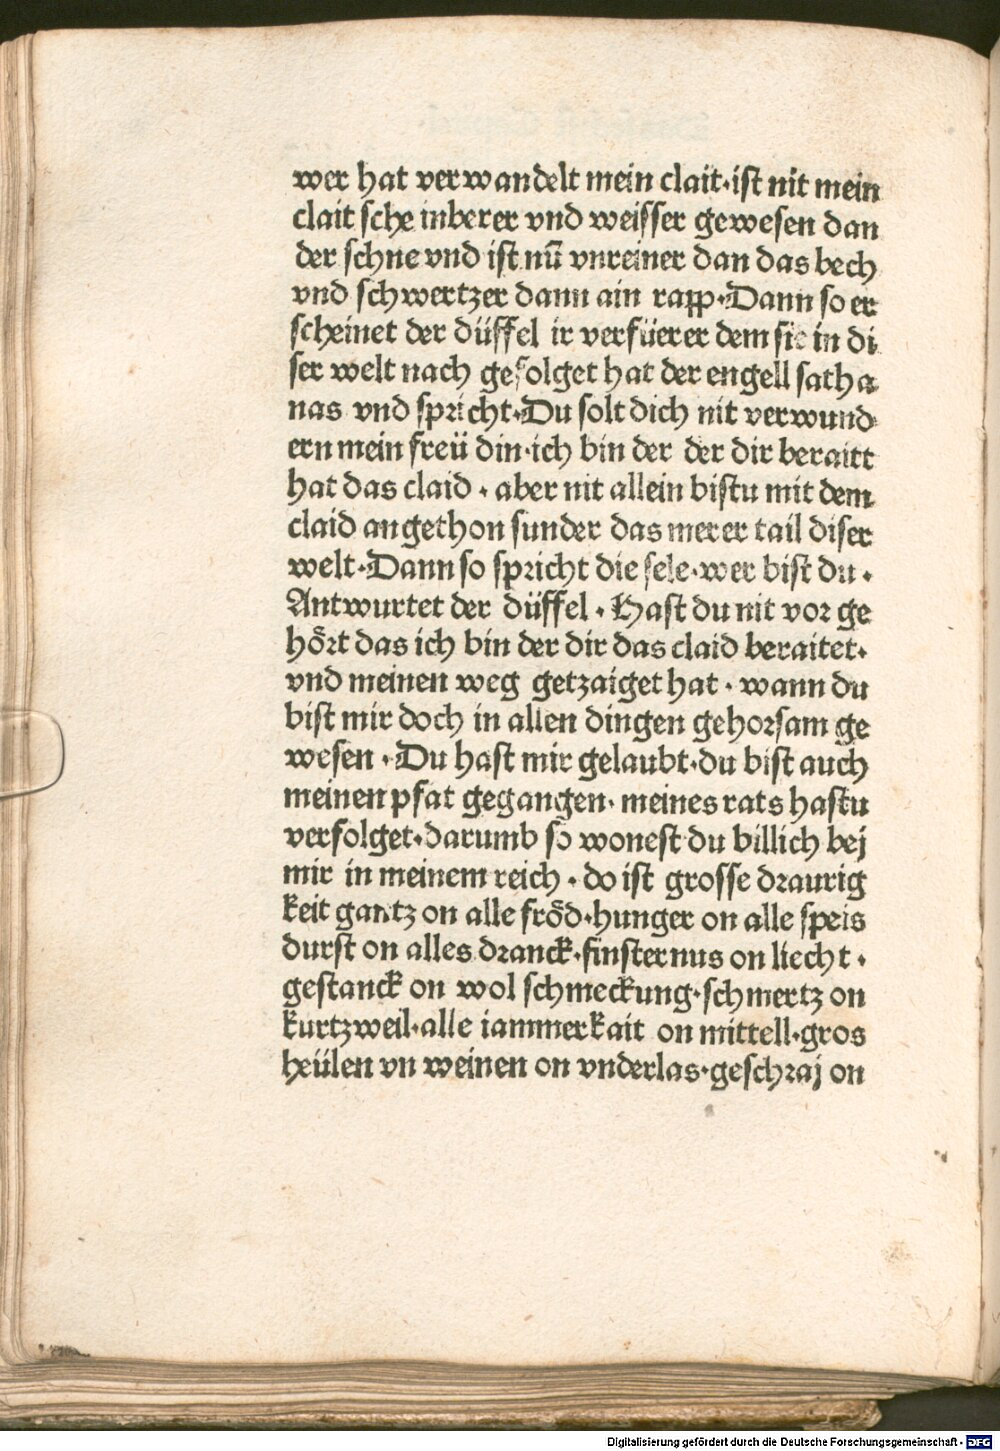 wer hat verwandelt mein clait·ist nit mein
clait scheinberer vnd weisser gewesen dan
der schne vnd ist nū vnreiner dan das bech
vnd schwertzer dann ain rapp·Dann so er
scheinet der düffel ir verfüerer dem sie in di
ser welt nach gefolget hat der engell satha
nas vnd spricht·Du solt dich nit verwund
ern mein freü din·ich bin der der dir beraitt
hat das claid · aber nit allein bistu mit dem
claid angethon sunder das merer tail diser
welt·Dann so spricht die sele·wer bist du ·
Antwurtet der düffel · Hast du nit vor ge
hört das ich bin der dir das claid beraitet·
vnd meinen weg getzaiget hat · wann du
bist mir doch in allen dingen gehorsam ge
wesen · Du hast mir gelaubt·du bist auch
meinen pfat gegangen· meines rats hastu
verfolget·darumb so wonest du billich bej
mir in meinem reich · do ist grosse draurig
keit gantz on alle fröd·hunger on alle speis
durst on alles dranck·finsternus on liecht ·
gestanck on wol schmeckung·schmertz on
kurtzweil·alle iammerkait on mittell·gros
heülen vn weinen on vnderlas·geschraj on
Digitalisierung gefördert durch die Deutsche Forschungsgemeinschaft - DFG